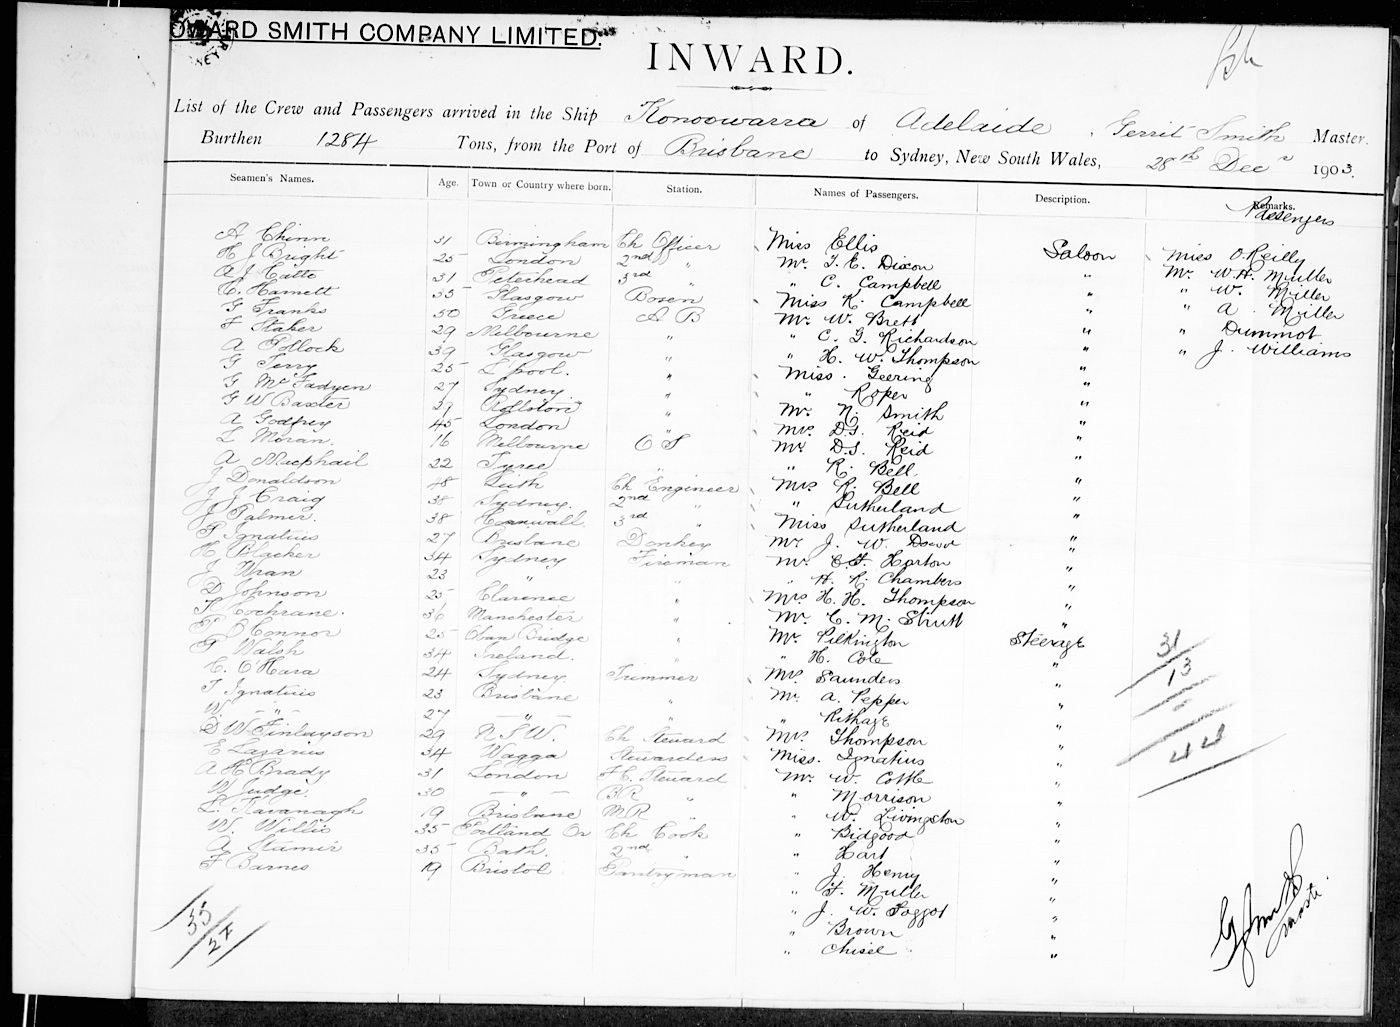 OWARD SMITH COMPANY LIMITED.
INWARD.
List of the Crew and Passengers arrived in the Ship Konoowarra of Adelaide, Gerrit Smith Master.
Burthen 1284 Tons, from the Port of Brisbane to Sydney, New South Wales, 28th Decr 1903.
Seamen's Names. Age. Town or Country where born. Station. Names of Passengers. Description. Remarks.
Passengers
A Chinn 31 Birmingham Ch Officer Miss Ellis Saloon Miss O'Reilly
H J Bright 25 London 2nd " Mr. T. E. Dixon " Mr. W. H. Muller
A J Catto 31 Peterhead 3rd " " C. Campbell " " W. Miller
C. Hamett 35 Glasgow Bosen Miss K. Campbell " " A. Miller
G Franks 50 Greece A B Mr. W. Brett " " Dummot
F Staker 29 Melbourne " " C. G. Richardson " " J. Williams
A Pollock 39 Glasgow " " H. W. Thompson "
G Terry 25 L'pool. " Miss. Geering "
G McFadyen 27 Sydney " " Roper "
G W Baxter 29 Rollston " Mr. N. Smith "
A Godfrey 45 London " Mrs. D. S. Reid "
L Moran. 16 Melbourne O S Mr D. S. Reid "
A Macphail 22 Tyree " " R. Bell "
J Donaldson 48 Leith Ch Engineer Mrs R. Bell "
J J Craig 38 Sydney. 2nd " " Sutherland "
J Palmer. 38 Cornwall 3rd " Miss Sutherland "
P Ignatius 27 Brisbane Donkey Mr J. W. Dowd "
H Blacker 34 Sydney Fireman Mr. C. F. Horton "
J Wran 23 " " " H. R. Chambers "
D Johnson 25 Clarence " Mrs H. H. Thompson "
F Cochrane. 36 Manchester " Mr. C. M. Strutt "
O'Connor 25 Bridge " Mr. Pilkington Steerage
P Walsh 34 Ireland. " " H. Cole "
C. O'Hara 24 Sydney Trimmer Mrs Saunders "
T Ignatius 23 Brisbane " Mr. A. Pepper "
W. " 27 " " "
D W Finlayson 29 N S W. Ch Steward Mrs. Thompson "
E Lazarus 34 Wagga Stewardess Miss. Ignatius "
A H Brady 31 London F. C. Steward Mr. W. Cottle "
W Judge. 30 " B R " " Morrison "
L. Kavanagh 19 Brisbane M R " " W. Livingston "
W. Willis 35 Portland Or Ch Cook " Bidgood "
A Stamir 35 Bath. 2nd " " Hart "
F Barnes 19 Bristol Pantryman " J. Henry "
" F. Muller "
" J. W. Faggot "
" Brown "
" Chisel "
31
13
44
35
27
G Smith
Master.